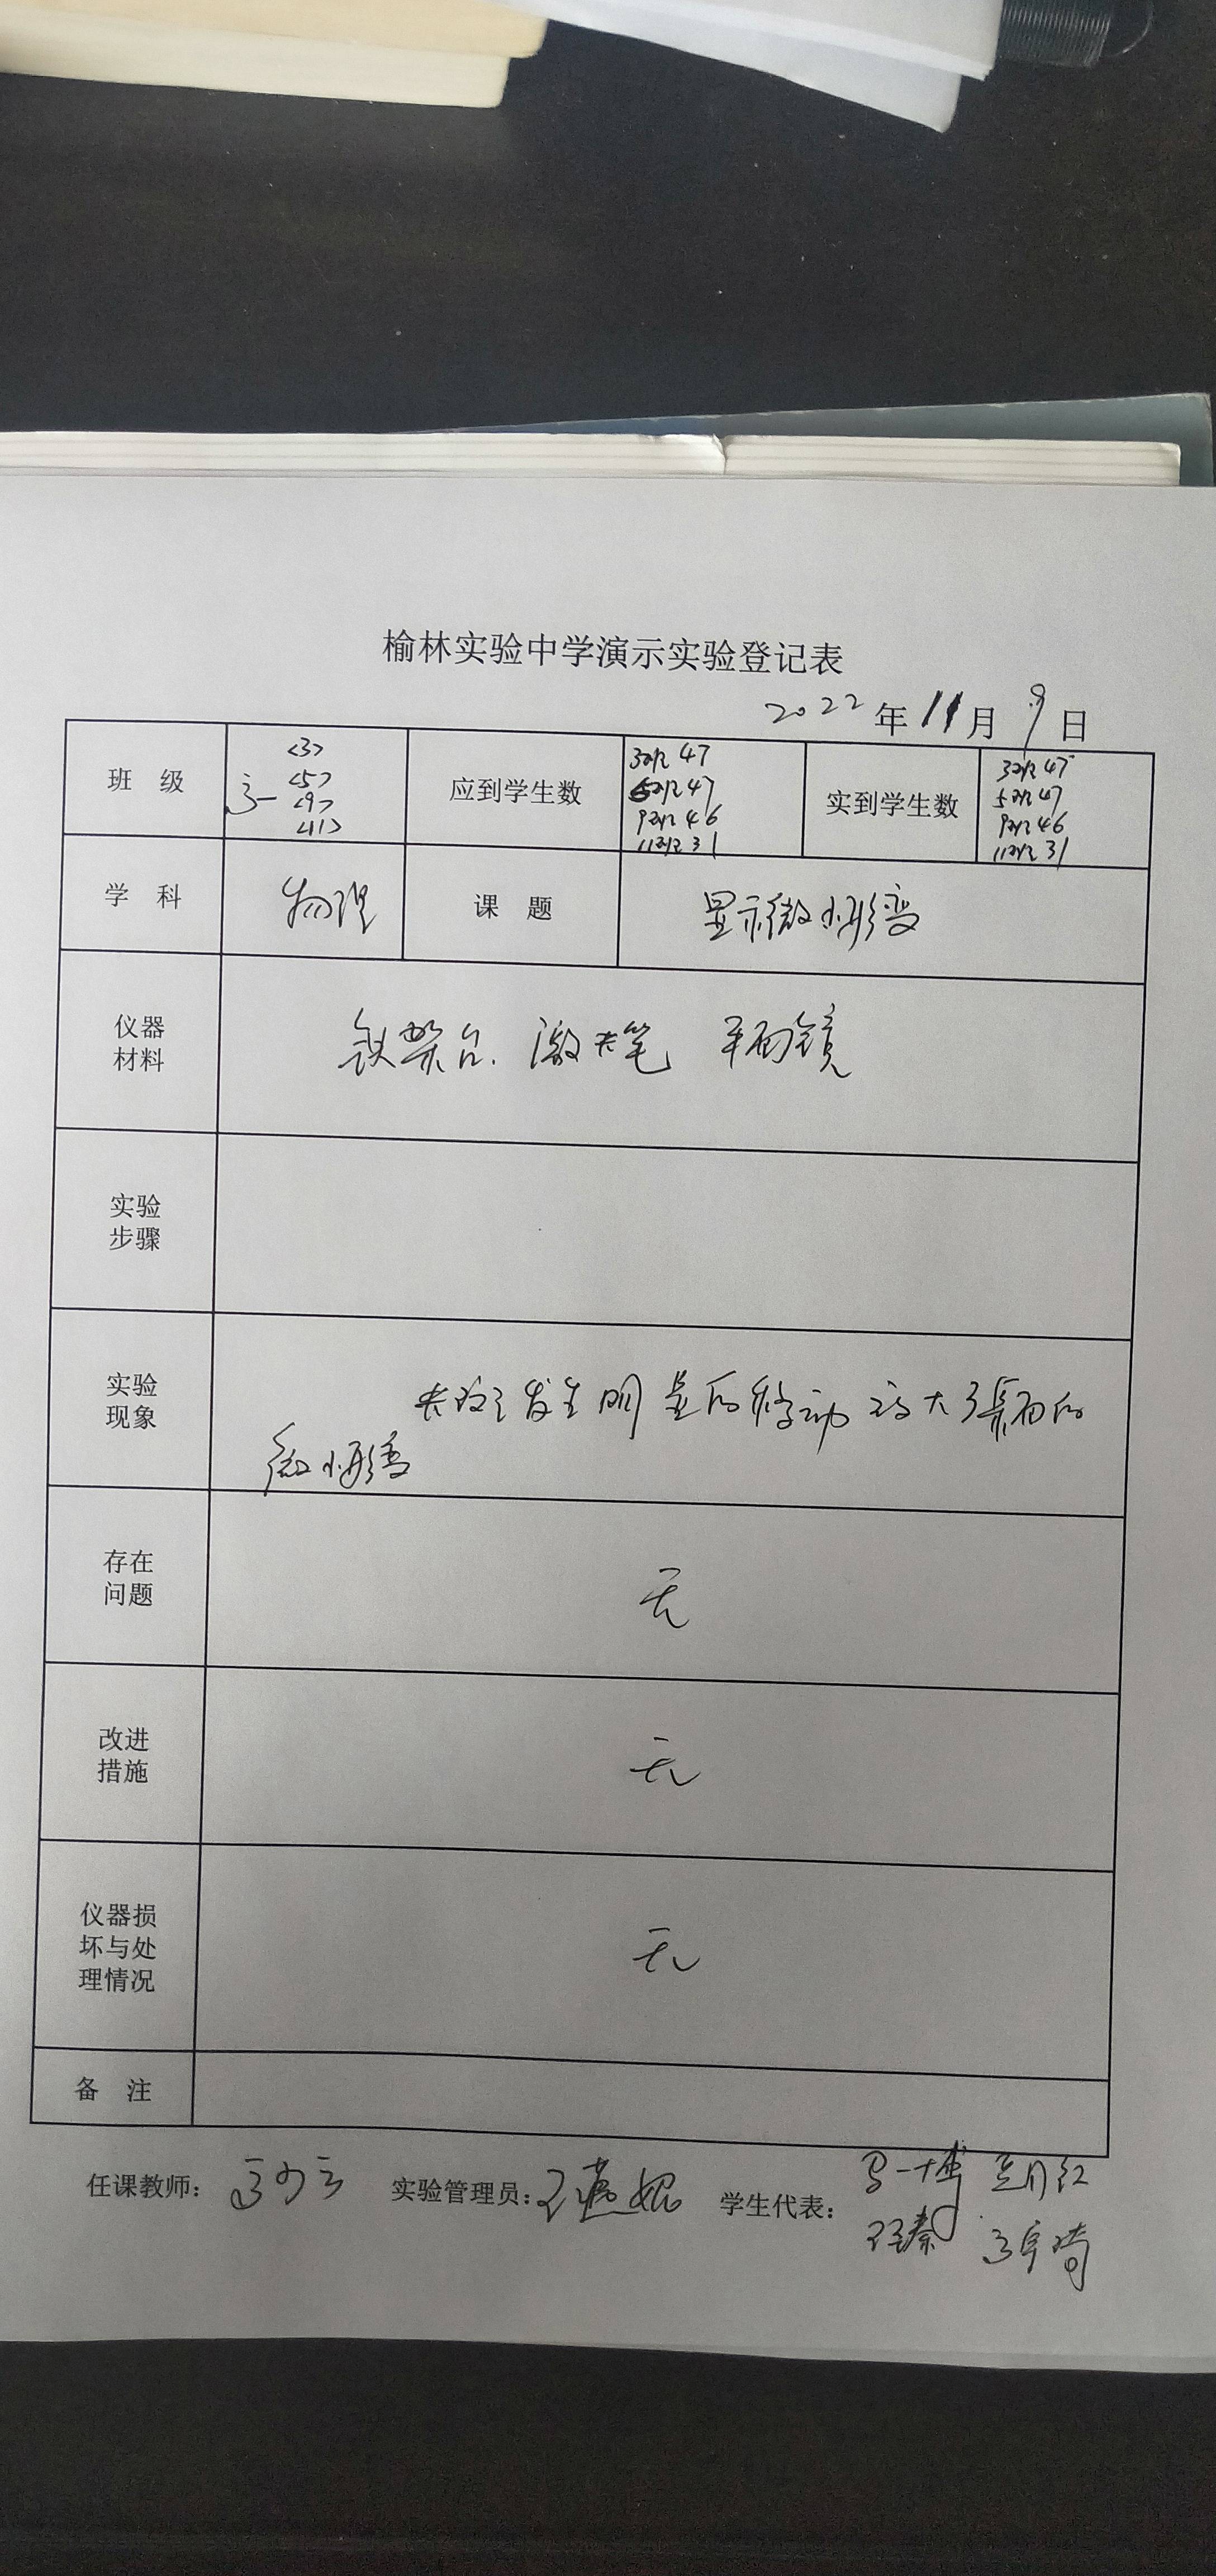 榆林实验中学演示实验登记表
2022年11月9日
班 级
高一
<3>
<5>
<9>
<11>
应到学生数
3班 47
5班 47
9班 46
11班 31
实到学生数
3班 47
5班 47
9班 46
11班 31
学 科 物理 课 题 显示微小形变
仪器
材料
铁架台. 激光笔 平面镜
实验
步骤
实验
现象
光斑发生明显的移动 放大 桌面的
微小形变
存在
问题
无
改进
措施
无
仪器损
坏与处
理情况
无
备 注
任课教师: 实验管理员: 学生代表: